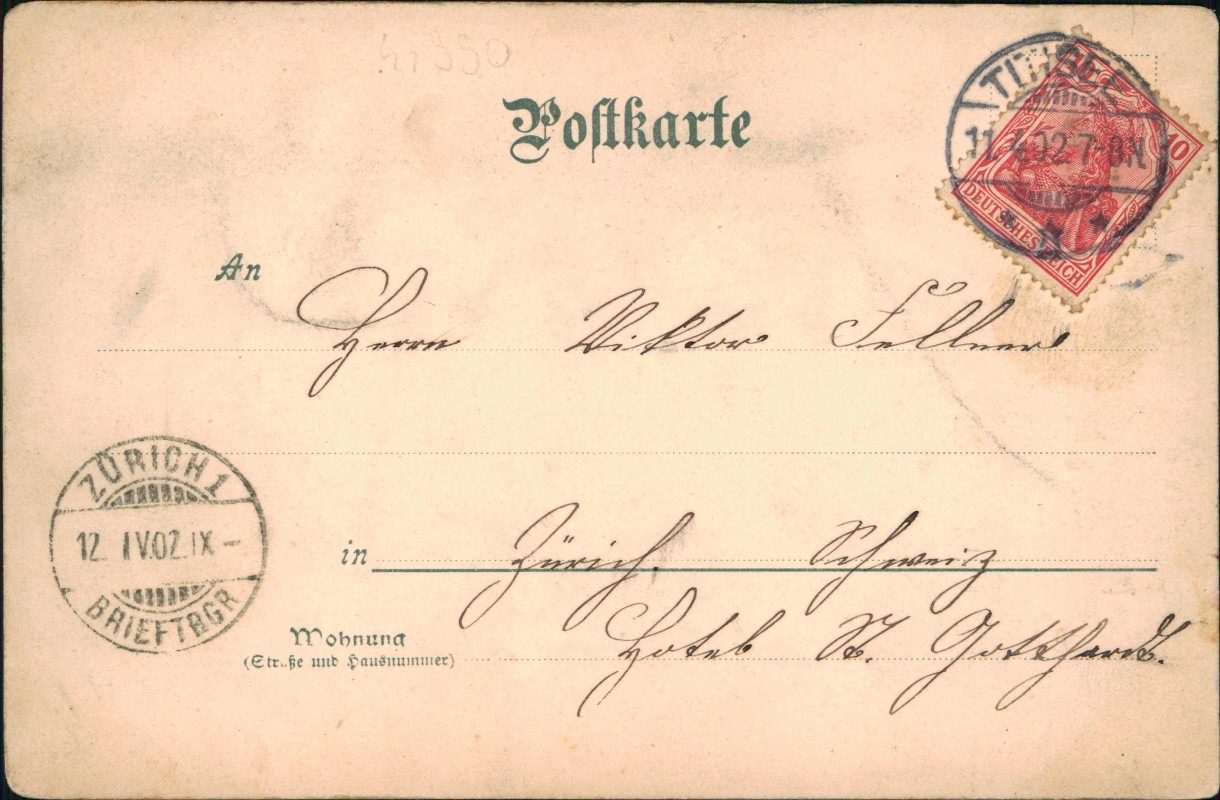 41350
Postkarte
TINGLE
11.4.02.7-8N.
10
DEUTSCHES REICH
An
Herrn Viktor Fellner
ZÜRICH 1
12. IV.02.IX-
BRIEFTRGR
in Zürich. Schweiz
Wohnung
(Straße und Hausnummer)
Hotel St. Gotthardt.